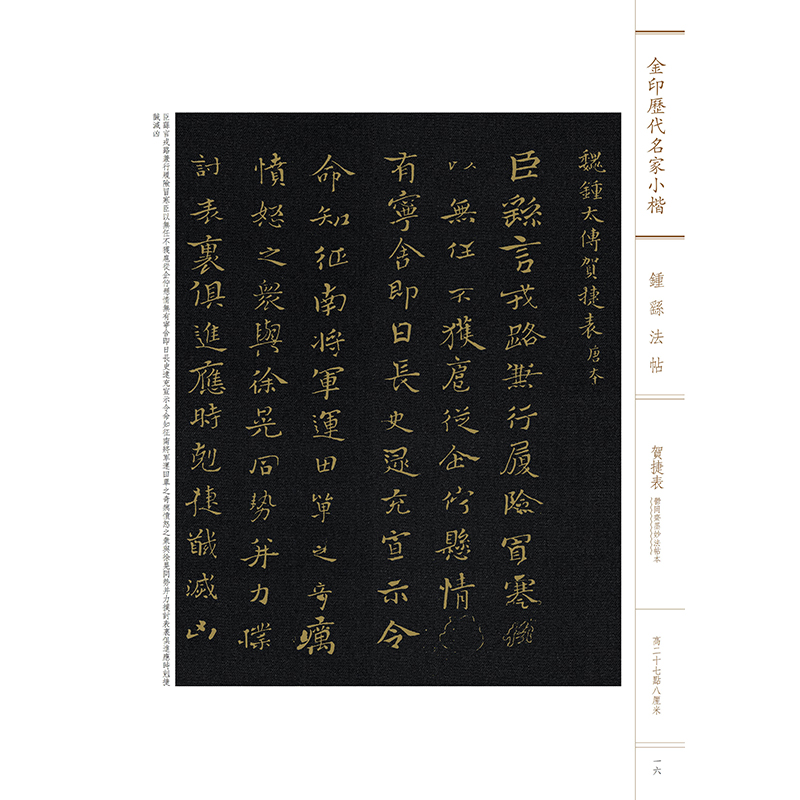 金印歷代名家小楷
鍾繇法帖
賀捷表 鬱岡齋墨妙法帖本
高二十七點八厘米
一六
魏鍾太傅賀捷表 唐本
臣繇言戎路兼行履險冒寒
以無任不獲扈從企佇懸情
有寧舍即日長史逯充宣示令
命知征南將軍運田單之奇厲
憤怒之衆與徐晃同勢并力撲
討表裏俱進應時剋捷馘滅凶
臣繇言戎路兼行履險冒寒臣以無任不獲扈從企佇懸情無有寧舍即日長史逯充宣示令命知征南將軍運田單之奇厲憤怒之衆與徐晃同勢并力撲討表裏俱進應時剋捷
馘滅凶